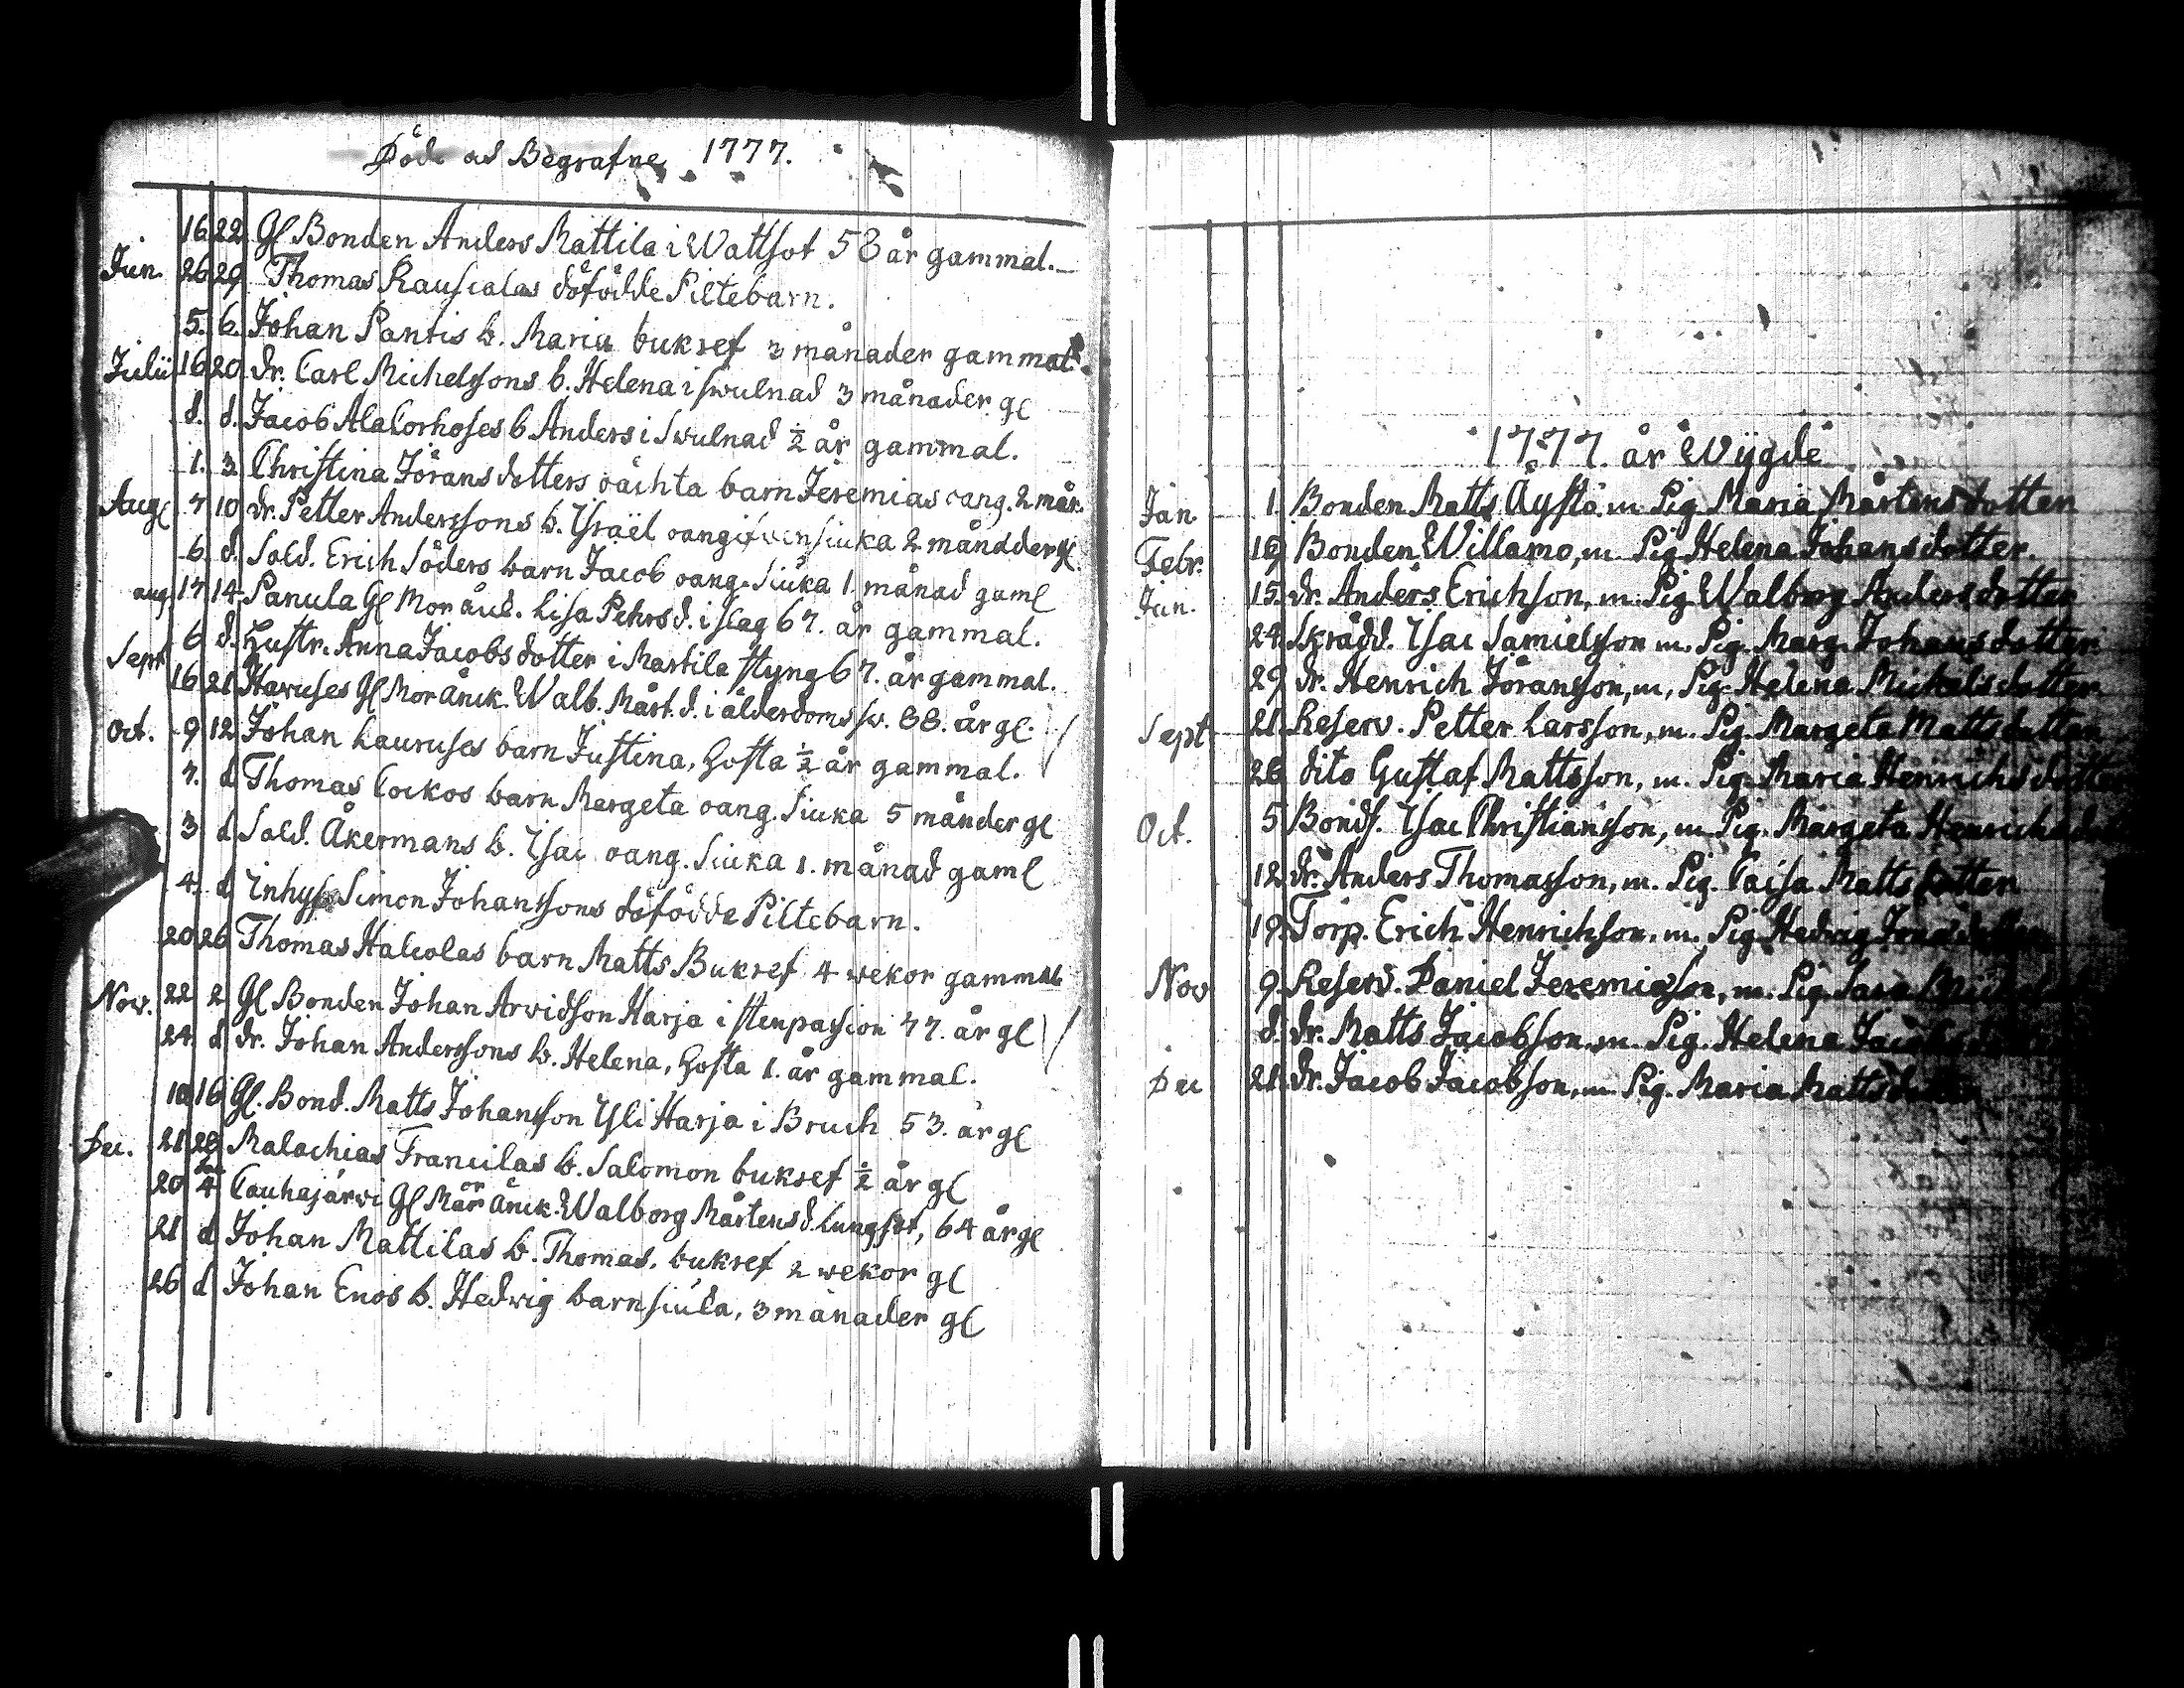 Döde och Begrafne 1777.
16 22 Gl Bonden Anders Mattila i Wattsot 58 år gammal.
Jun. 26 29 Thomas Rauscalas döfödde Piltebarn.
5. 6. Johan Pantis b. Maria bukref 3 månader gammal.
Julii 16 20 dr. Carl Michelssons b. Helena i swulnad 3 månader gl
d. d. Jacob AlaCorhoses b Anders i Swulnad ½ år gammal.
1. 3. Christina Jöransdotters oächta barn Jeremias oang. 2 mån.
Aug 7 10 dr. Petter Anderssons b. Ysraël oangifven siuka 2 månader gl.
6. d. Sold. Erich Söders barn Jacob oang. Siuka 1 månad gaml
aug. 17 14 Panula Gl Mor Lisa Pehrsd. i slag 67. år gammal.
Sept 6 d. Hustr. Anna Jacobsdotter i Martila styng 67. år gammal.
16 21 Haruses Gl Mor Änck. Walb. Mårt. d. i ålderdoms sv. 88. år gl.
Oct. 9 12 Johan Lauruses barn Justina, Hosta ½ år gammal.
7. d Thomas Cockos barn Margeta oang. Siuka 5 månder gl
3 d Sold. Åkermans b. Ysac oang. Siuka 1. månad gaml
4. d Inhys. Simon Johanssons döfödde Piltebarn.
20 26 Thomas Halcolas barn Matts Bukref 4 wekor gammal
Nov. 22 2 Gl Bonden Johan Arvidsson Harja i stenpassion 77. år gl
24 d dr. Johan Anderssons b. Helena, Hosta 1. år gammal.
10 16 Gl. Bond. Matts Johansson Yli Harja i Bruch 53. år gl
Dec. 21 28 Malachias Francilas b. Salomon bukref ½ år gl
20 4 Cauhajärvi Gl Mor Änck. Walborg Mårtensd. lungsot, 64 år gl
21 d Johan Mattilas b. Thomas. bukref 2 wekor gl
26 d Johan Enos b. Hedwig barnsiula, 3 månader gl
1777. år Wijgde
Jan 1. Bonden Matts Äystö m. Pig. Maria Mårtensdotter
Febr. 16 Bonden Willamo, m. Pig. Helena Johansdotter.
Jun. 15. dr. Anders Erichson, m. Pig. Walborg Andersdotter
24 Skrädd. Ysac Samuelsson m. Pig. Marg. Johansdotter
29 dr. Henrich Jöransson, m. Pig. Helena Michelsdotter
Sept 21. Reserv. Petter Larsson, m. Pig. Margeta Mattsdotter
26 dito Gustaf Mattsson, m. Pig. Maria Henrichsdotter
Oct. 5 Bonds. Ysac Christiansson, m. Pig. Margeta
12 dr. Anders Thomasson, m. Pig. Caisa Mattsdotter
19. Torp. Erich Henrichson, m. Pig Hedvig
Nov 9. Reserv. Daniel Jeremiasson, m. Pig. Sara
d. dr. Matts Jacobson m. Pig. Helena
Dec 21. dr. Jacob Jacobson, m Pig. Maria Mattsdotter